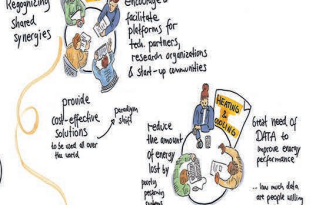 Recognizing
Shared
Synergies
encourage &
facilitate
platforms for
tech. partners,
research organizations
& start-up communities
provide
cost-effective
solutions
to be used all over
the world
paradigm
shift
HEATING &
COOLING
reduce
the amount
of energy
lost by
poorly
systems
Great need of
DATA to
improve energy
performance
-- how much data
are people willing